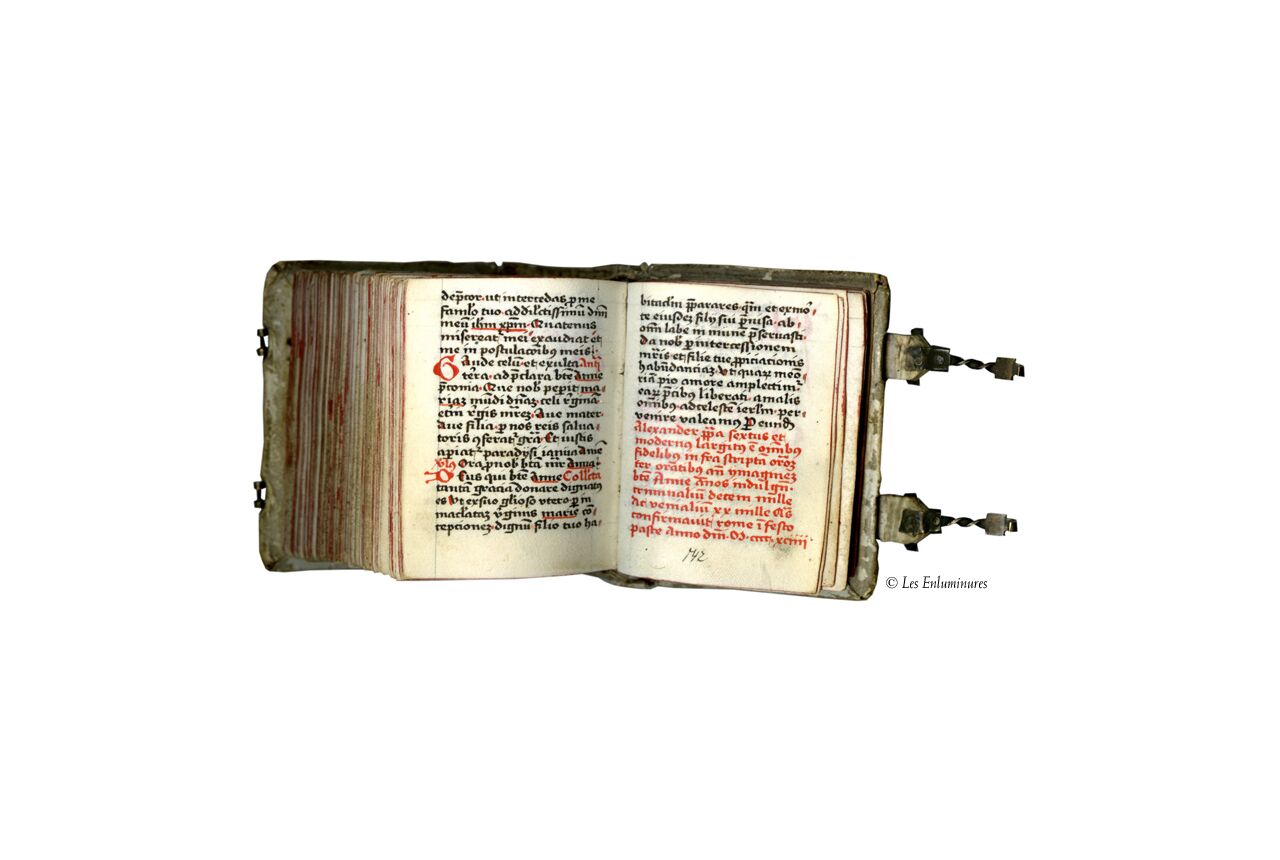 dep̄cor ut intercedas ꝓ me
famlo tuo ad dilc̄tissimū dn̄m
meū ihm xp̄m Quatenus
misereat᷑ mei exaudiat et
me in postulac̄oībus meis
Gaude celū et exulta Anti
terra ad p̄clara bt̄e Anne
p̄conia Que nob̄ peperit ma
riaz mūdi dn̄az celi r̄gina
etm̄ r̄gis mr̄ez Aue mater
aue filia ꝓ nos reis salua
toris ꝯferat᷑ grā Et iustis
apiat᷑ paradysi ianua Ame
Ora ꝓ nob bt̄a mr̄ Anna
Deus qui bt̄e Anne Coll̄cta
tantā gracia donare dignatꝰ
es Ut ex suo gl̄ioso vtero
maclataz v̄ginis marie cō
cepcionez dignū filio tuo ha
bitaclm̄ p̄parares qm̄ et ex mor
te eiusdez filij sui p̄uisa ab
om̄ labe in mune p̄seruasti
da nob ꝓ intercessionem
mr̄is et filie tue ꝓpiciacionis
habūdanciaz Ut quaꝝ memo
riā pio amore amplectimꝰ
eaꝝ p̄cibus liberati a malis
om̄ibꝰ ad celestē ierlm̄ per
venire valeamꝰ P eundē
Alexander pp̄a sextus et
modernus largitꝰ ē om̄ibꝰ
fidelibus infra scriptā
orātibus an̄ ymaginez
bt̄e Anne añnos indulgn̄
criminaliū decem mille
ac venialiū xx mille
confirmauit rome ī festo
pasce Anno dm̄ M cccc xciiij
142
© Les Enluminures